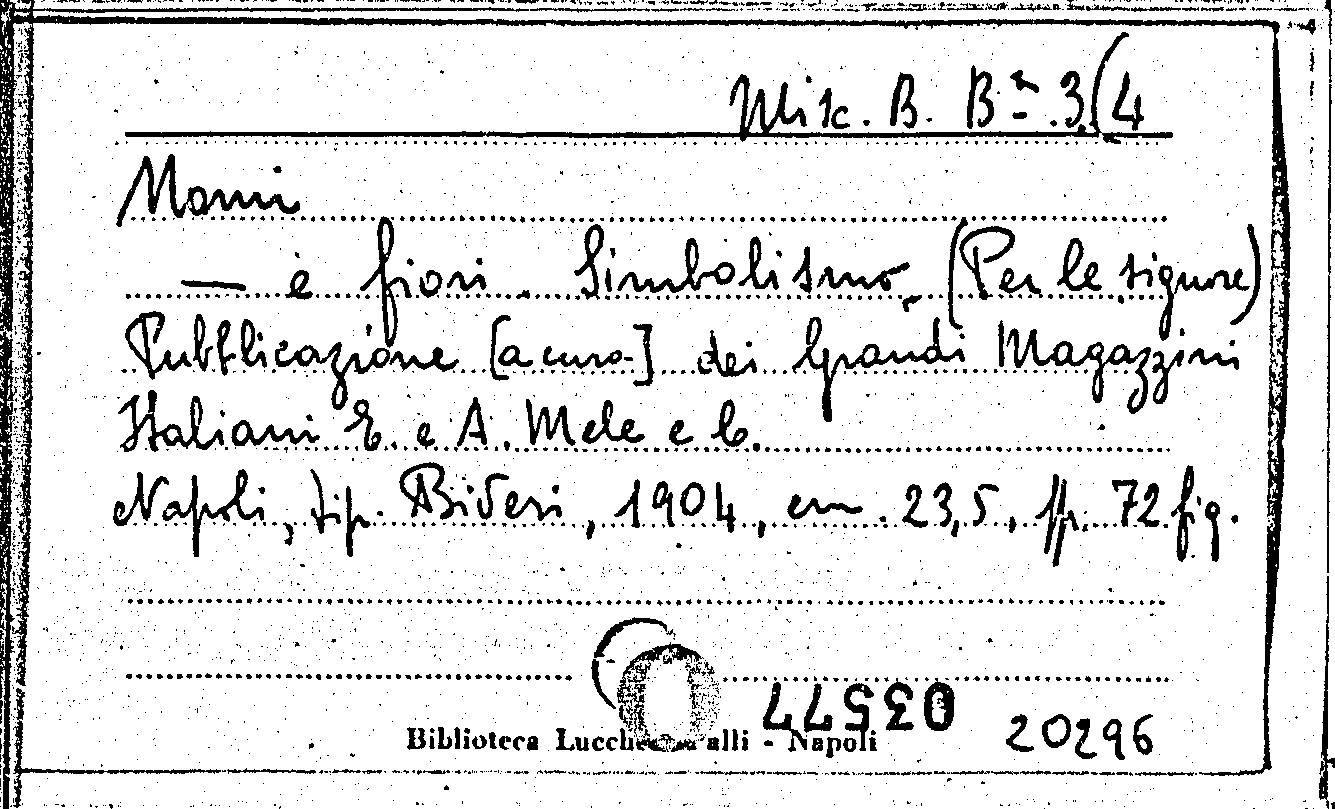 Misc. B. Bª. 3(4
Nomi
— e fiori. Simbolismo. (Per le signore)
Pubblicazione [a cura] dei Grandi Magazzini
Italiani E. e A. Mele e C.
Napoli, tip. Bideri, 1904, cm. 23,5, pp. 72 fig.
03577
20296
Biblioteca Lucchesi Palli - Napoli